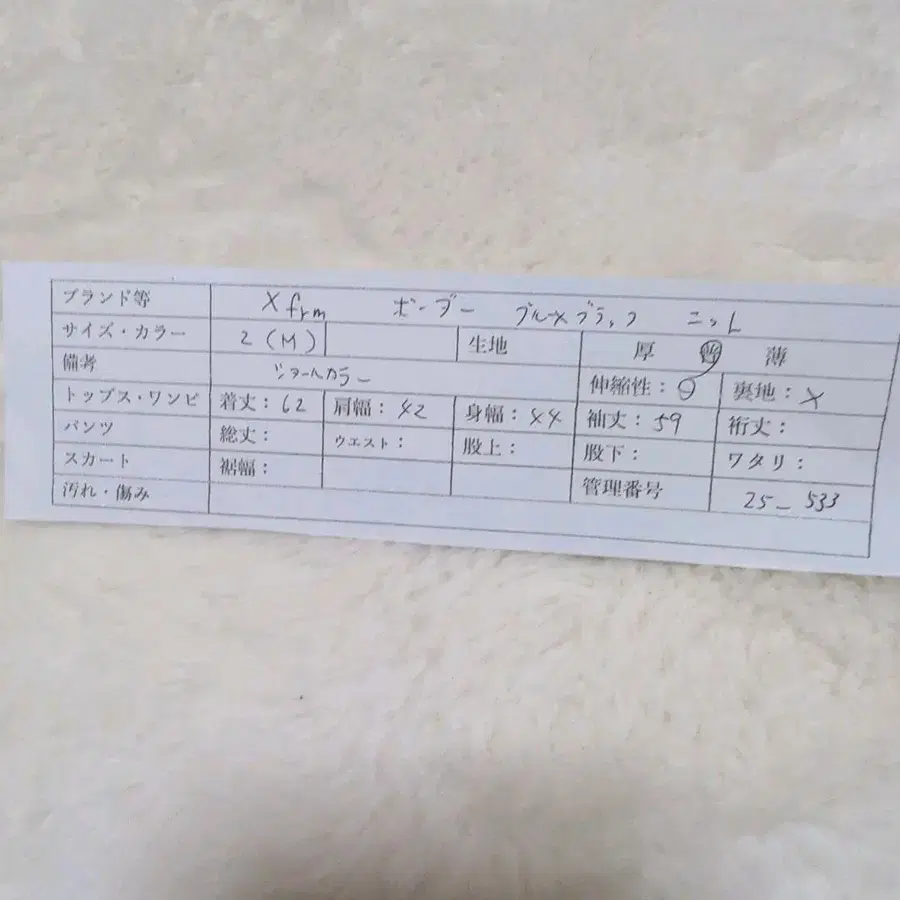 ブランド等 Xfrm ボーダー ブルー×ブラック ニット
サイズ・カラー 2(M) 生地 厚 普 薄
備考 ショールカラー 伸縮性:○ 裏地:×
トップス・ワンピ 着丈:62 肩幅:42 身幅:44 袖丈:59 裄丈:
パンツ 総丈: ウエスト: 股上: 股下: ワタリ:
スカート 裾幅: 管理番号 25_533
汚れ・傷み